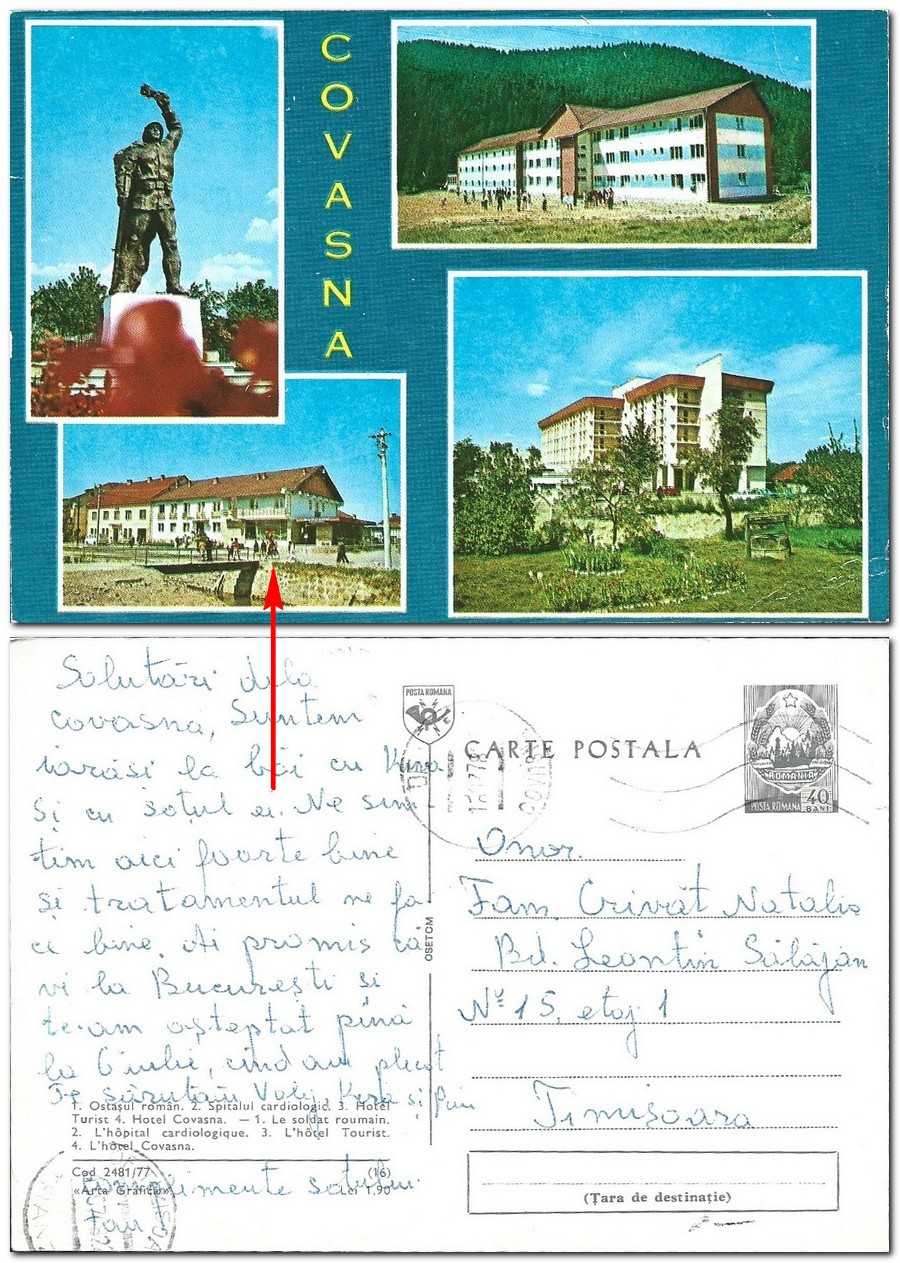 COVASNA
Salutări dela
covasna, Suntem
iarăși la băi cu
și cu soțul ei. Ne sim
țim aici foarte bine
și tratamentul ne fa
ce bine. Ai promis că
vi la București si
te-am așteptat pînă
la 6 iulie, cînd am plecat
Te sărutăm
1. Ostașul român. 2. Spitalul cardiologic. 3. Hotel
Turist 4. Hotel Covasna. — 1. Le soldat roumain.
2. L'hôpital cardiologique. 3. L'hôtel Tourist.
4. L'hôtel Covasna.
Cod 2481/77 (16)
«Arta Grafică» Lei 1,90
soțului
OSETCM
POSTA ROMANA
CARTE POSTALA
ROMANIA
POSTA ROMANA 40 BANI
Onor.
Fam. Crivăt Natalia
Bd. Leontin Sălăjan
Nº 15, etaj 1
Timișoara
(Țara de destinație)